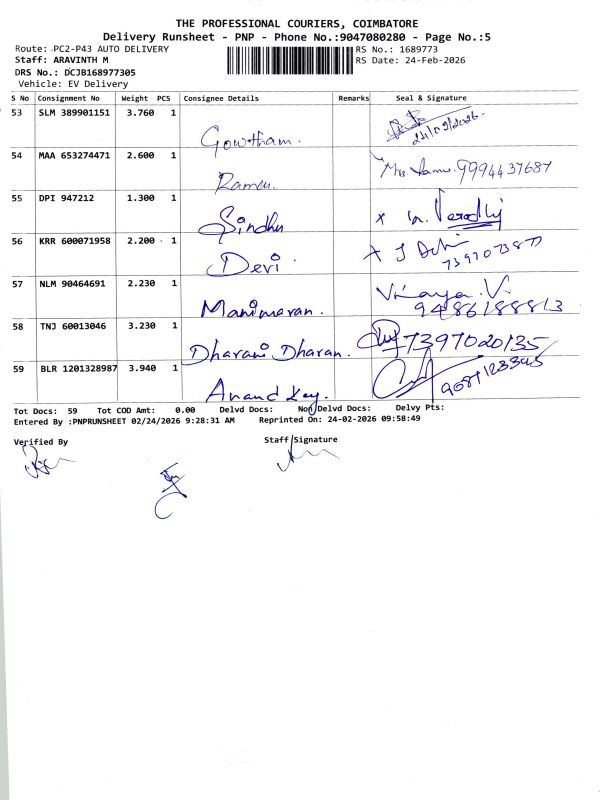 THE PROFESSIONAL COURIERS, COIMBATORE
Delivery Runsheet - PNP - Phone No.:9047080280 - Page No.:5
Route: PC2-P43 AUTO DELIVERY RS No.: 1689773
Staff: ARAVINTH M RS Date: 24-Feb-2026
DRS No.: DCJB168977305
Vehicle: EV Delivery
S No Consignment No Weight PCS Consignee Details Remarks Seal & Signature
53 SLM 389901151 3.760 1 Gowtham. 24/02/2026.
54 MAA 653274471 2.600 1 Ramu. Mrs. 9994437687
55 DPI 947212 1.300 1 Sindhu x
56 KRR 600071958 2.200 1 Devi. x J 7397073877
57 NLM 90464691 2.230 1 Manimaran. Vijaya. V. 9486188813
58 TNJ 60013046 3.230 1 Dharani Dharan. 7397020135
59 BLR 1201328987 3.940 1 Anand 9087123345
Tot Docs: 59 Tot COD Amt: 0.00 Delvd Docs: Non Delvd Docs: Delvy Pts:
Entered By :PNPRUNSHEET 02/24/2026 9:28:31 AM Reprinted On: 24-02-2026 09:58:49
Verified By Staff/Signature